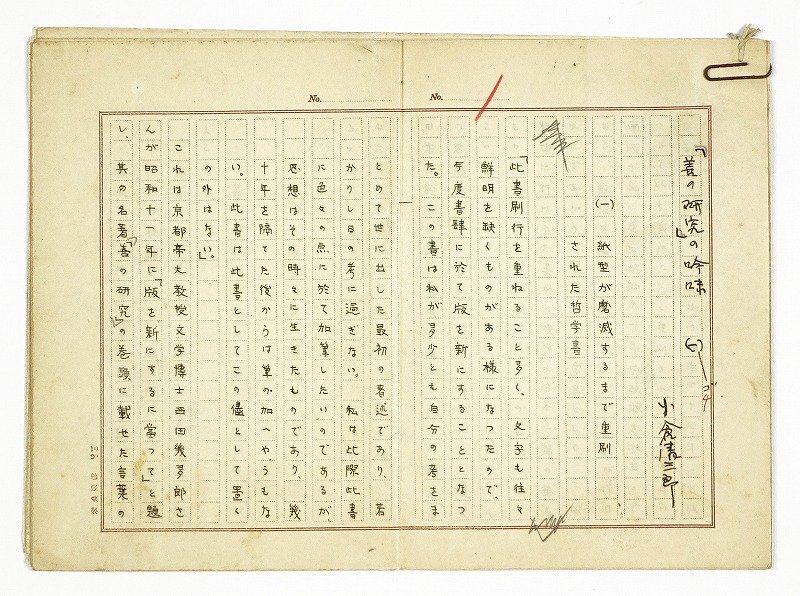 「善の研究」の吟味 (一)
ゴチ
小倉清三郎
(一) 紙型が磨滅するまで重刷
された哲学書
「此書刷行を重ねること多く、文字も往々
鮮明を缺くものがある様になつたので、
今度書肆に於て版を新にすることとなつ
た。この書は私が多少とも自分の考をま
とめて世に出した最初の著述であり、若
かりし日の考に過ぎない。私は此際此書
に色々の点に於て加筆したいのであるが、
思想はその時々に生きたものであり、幾
十年を隔てた後からは筆の加へやうもな
い。此書は此書としてこの儘として置く
の外はない。」
これは京都帝大教授文学博士西田幾多郎さ
んが昭和十一年に「版を新にするに當つて」と題
し、其の名著『善の研究』の巻頭に載せた言葉の
No.
No.
10 20